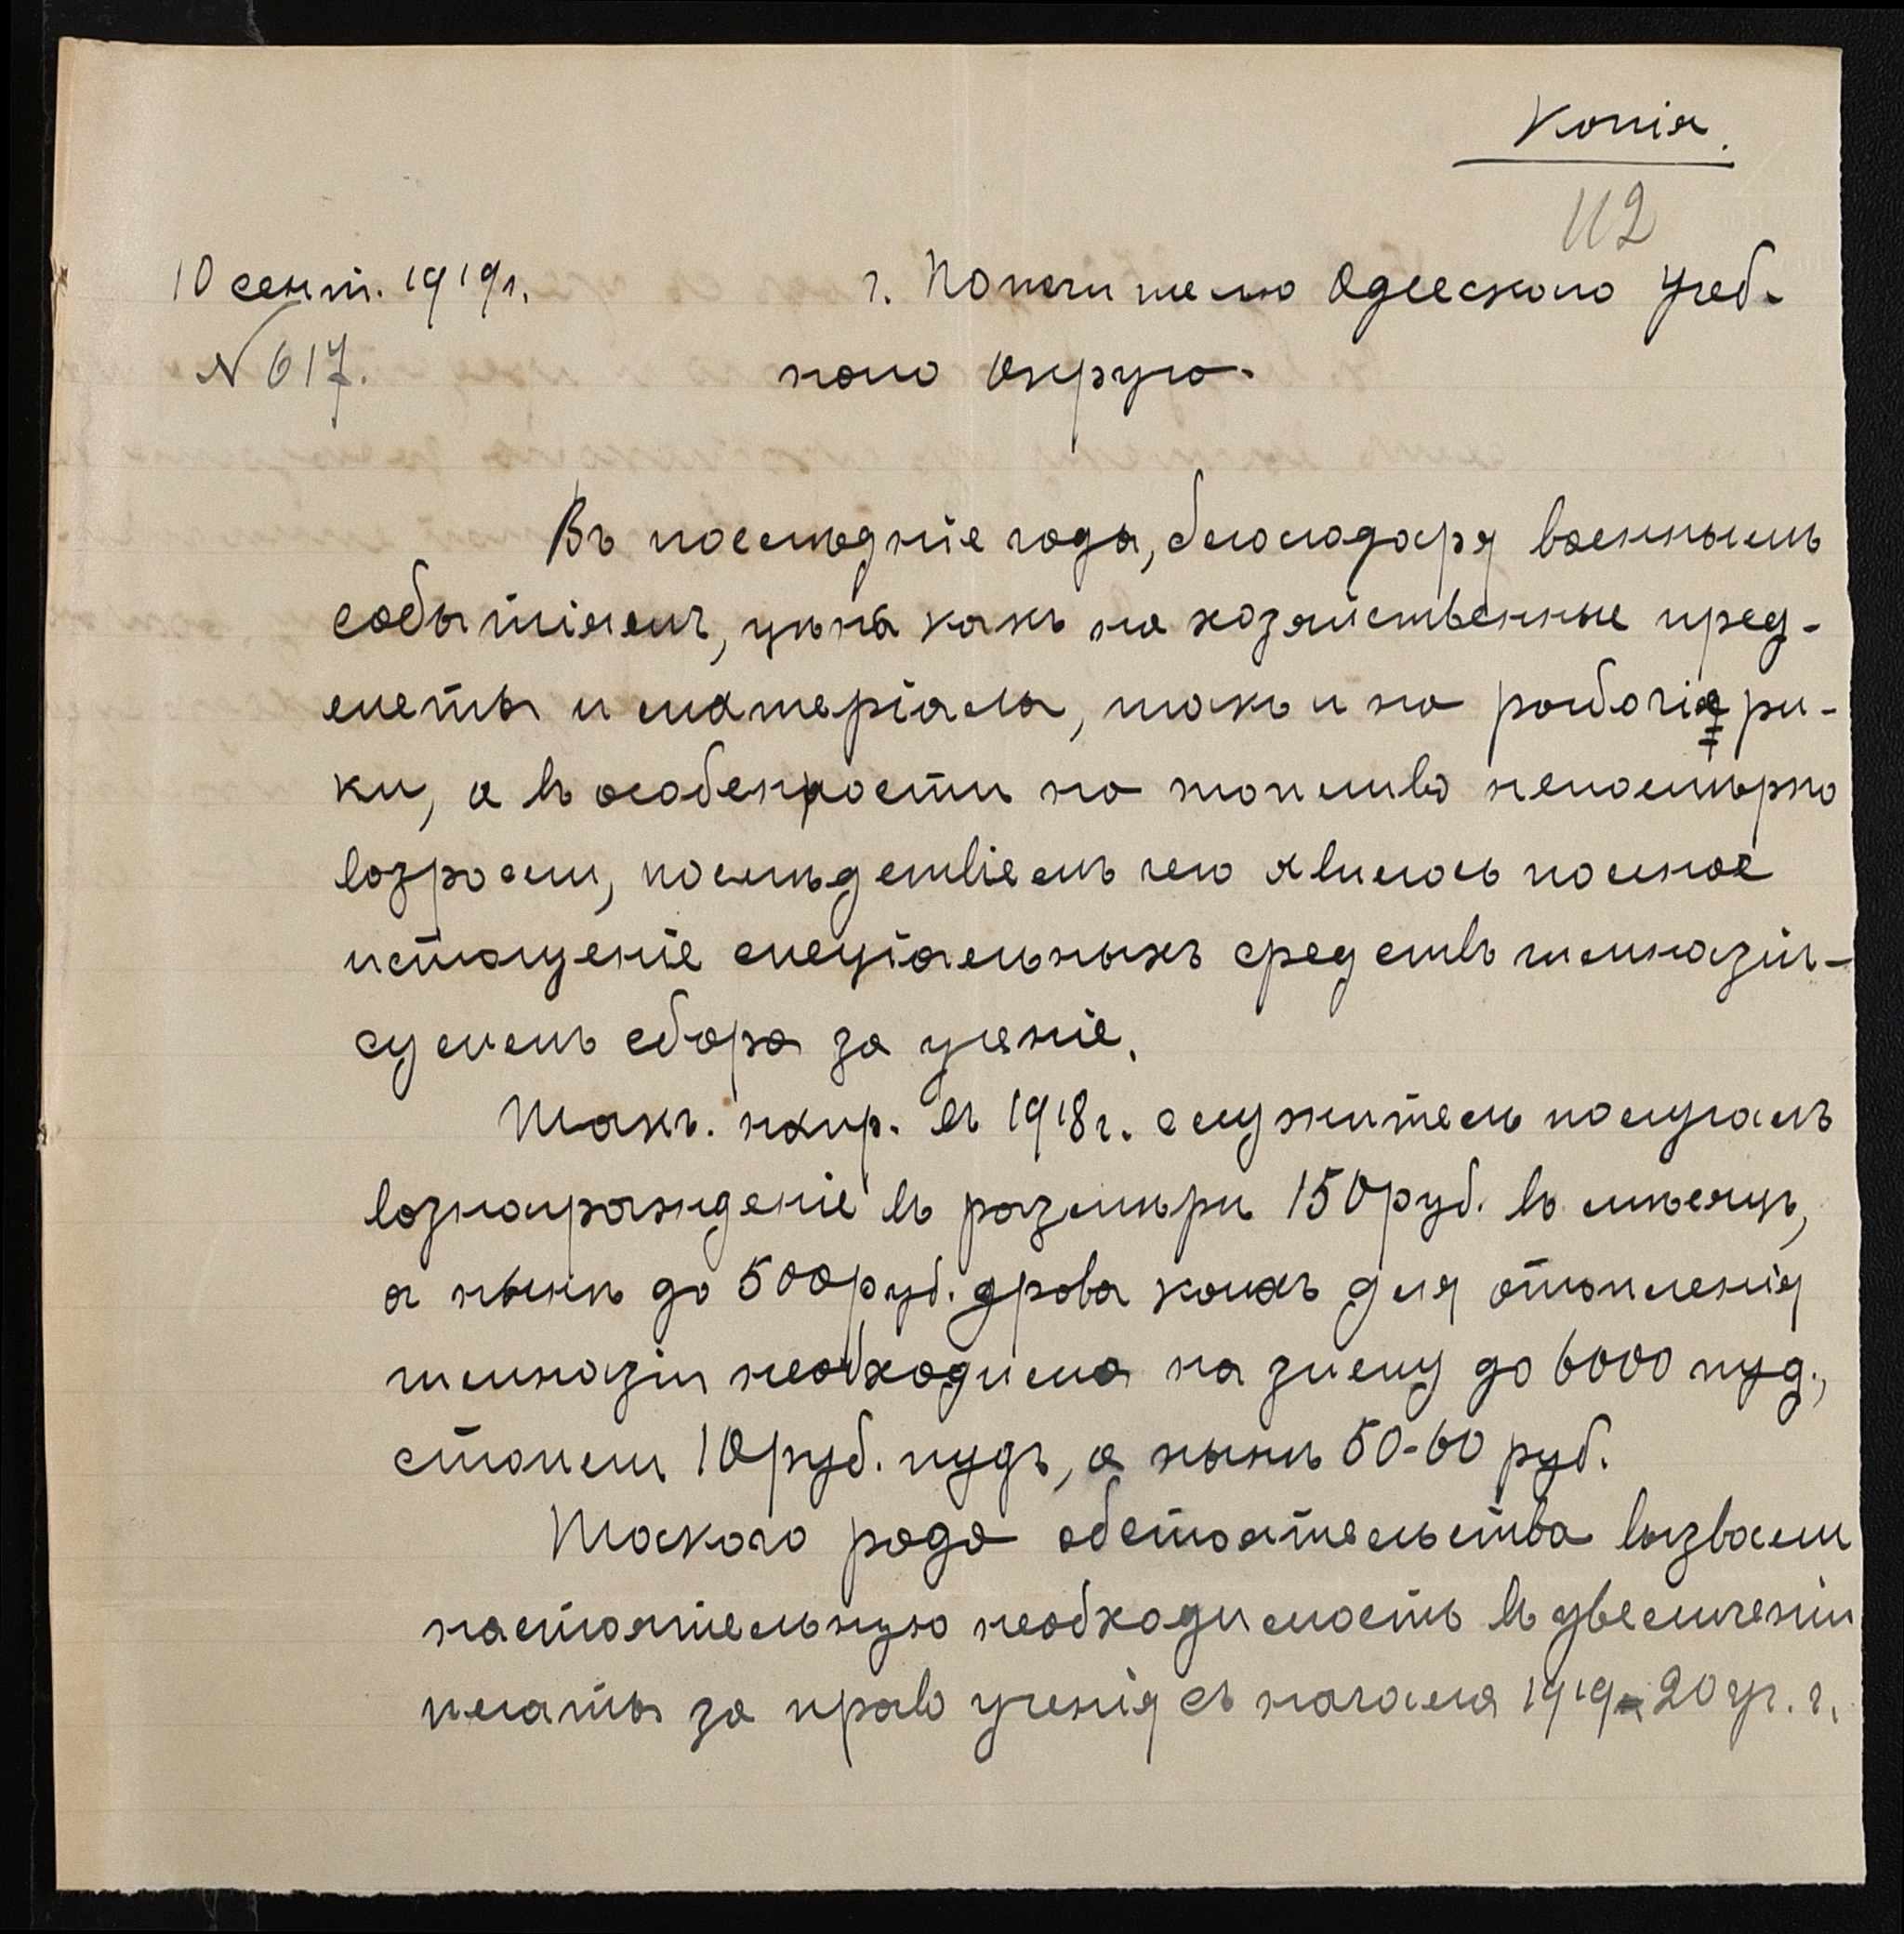 Копія.
112
10 сент. 1919 г.
г. Попечителю Одесскаго Учеб-
№ 617.
наго Округа.
Въ послѣдніе года, благодаря военнымъ
событіямъ, цѣна какъ на хозяйственные пред-
меты и матеріалы, такъ и на рабочія ру-
ки, а въ особенности на топливо непомѣрно
возросли, послѣдствіемъ чего явилось полное
истощеніе спеціальныхъ средствъ гимназіи -
суммъ сбора за ученіе.
Такъ. напр. въ 1918 г. служитель получалъ
вознагражденіе въ размѣрѣ 150 руб. въ мѣсяцъ,
а нынѣ до 500 руб. дрова коихъ для отопленія
гимназіи необходимо на зиму до 6000 пуд.,
стоили 10 руб. пудъ, а нынѣ 50-60 руб.
Такого рода обстоятельства вызвали
настоятельную необходимость въ увеличеніи
платы за право ученія съ начала 1919-20 уч. г.